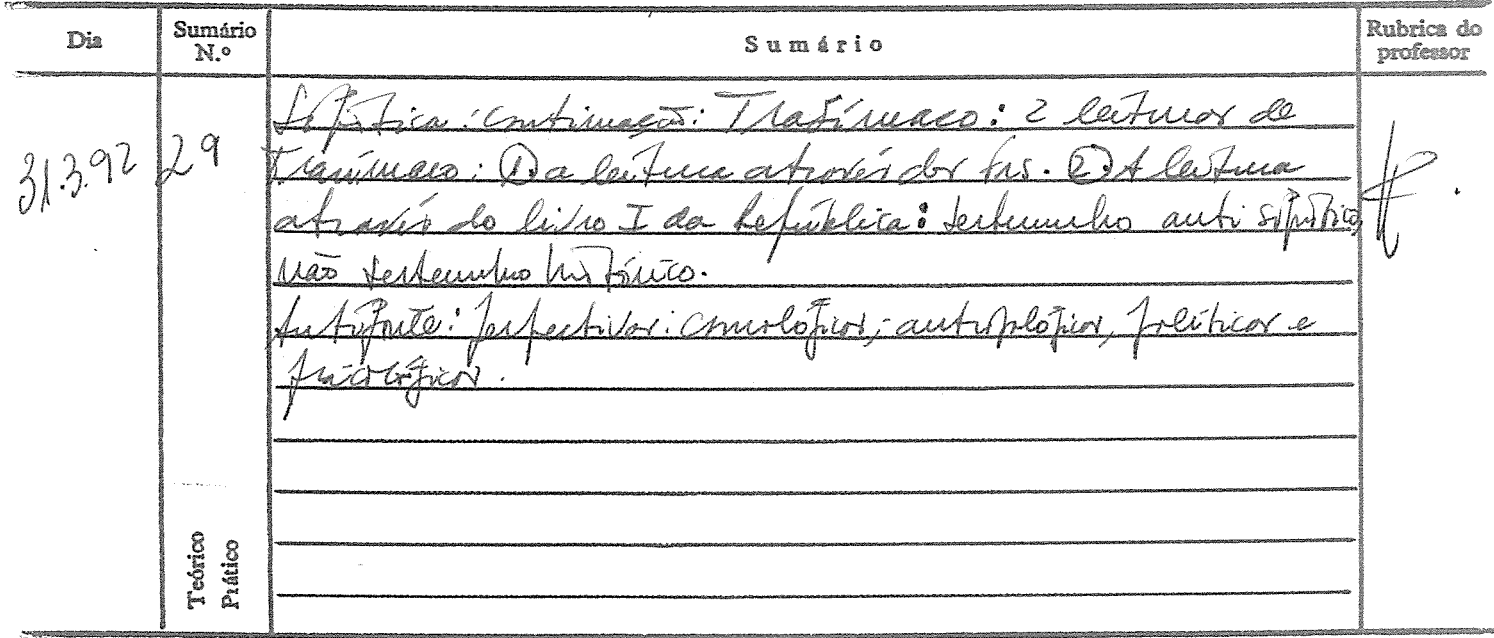 Dia
Sumário N.º
Sumário
Rubrica do professor
31.3.92
29
Sofística: continuação: Trasímaco: 2 leituras de
Trasímaco: 1. a leitura através dos frs. 2. A leitura
através do livro I da República: testemunho anti sofístico,
não testemunho histórico.
Antifonte: perspectivas: cosmológicas, antropológicas, políticas e
psicológicas.
Teórico
Prático